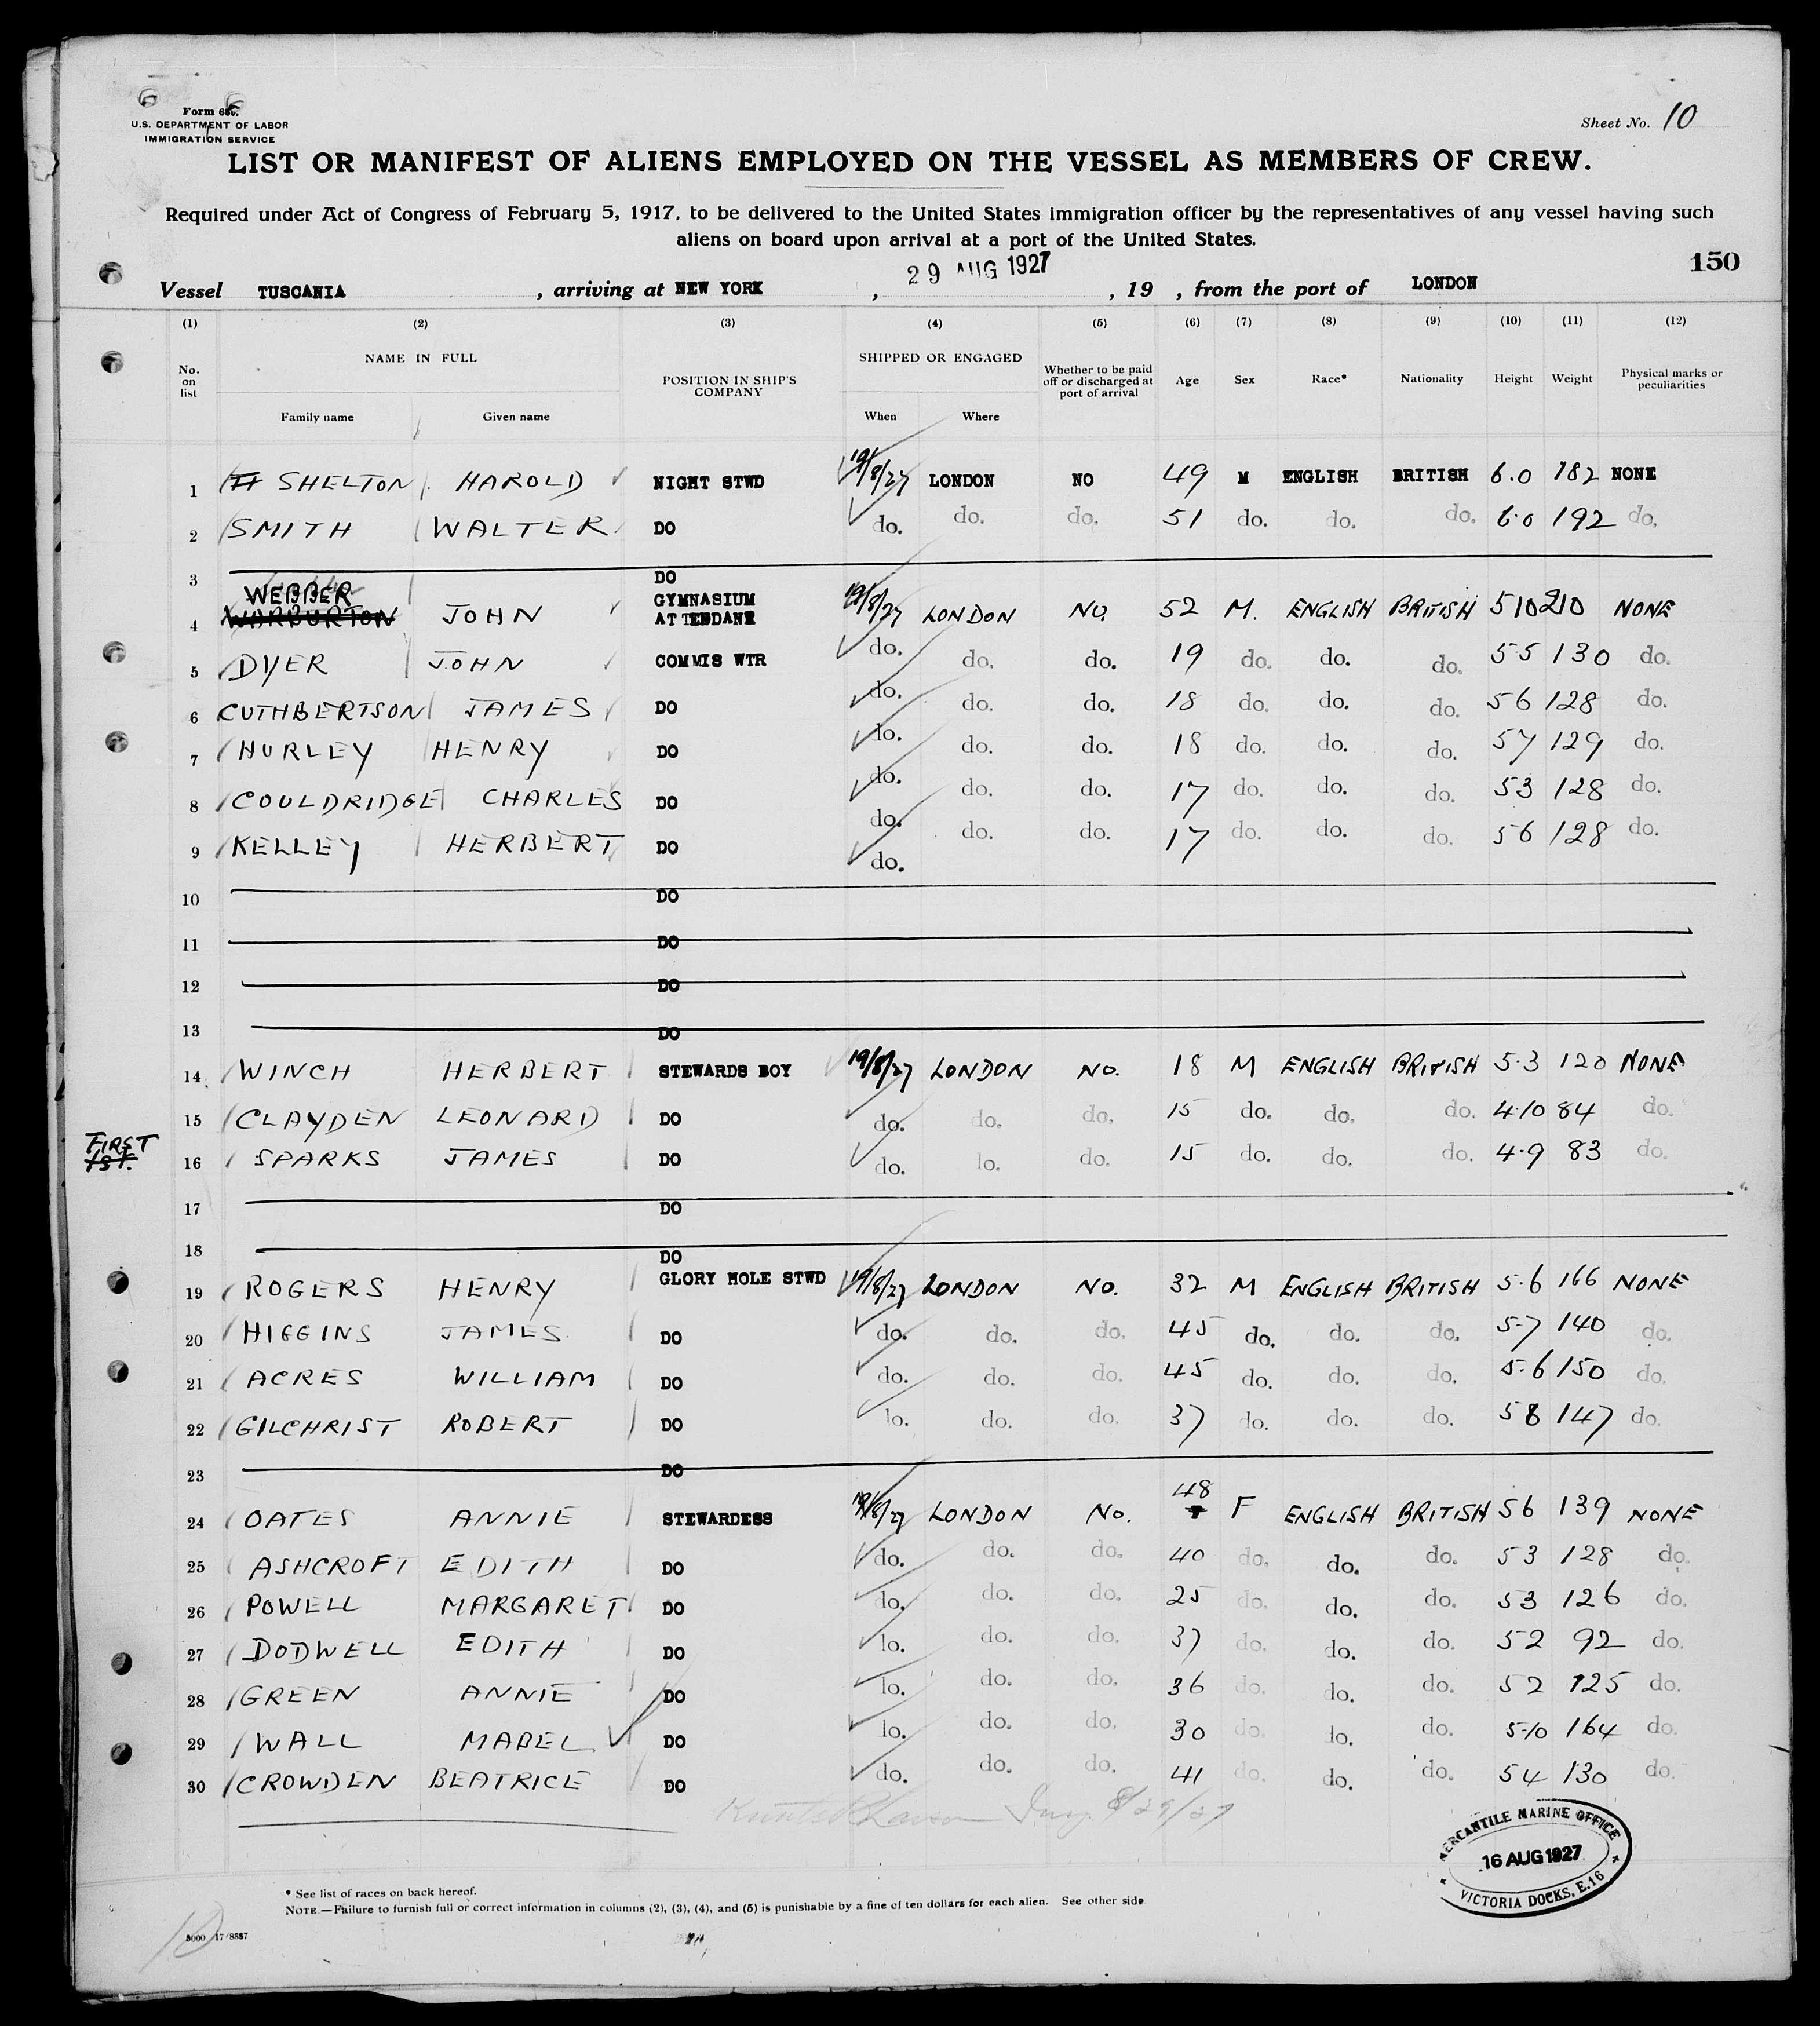 Form 680.
U.S. DEPARTMENT OF LABOR
IMMIGRATION SERVICE
Sheet No. 10
LIST OR MANIFEST OF ALIENS EMPLOYED ON THE VESSEL AS MEMBERS OF CREW.
Required under Act of Congress of February 5, 1917, to be delivered to the United States immigration officer by the representatives of any vessel having such
aliens on board upon arrival at a port of the United States.
150
Vessel TUSCANIA, arriving at NEW YORK, 29 AUG 1927, 19 , from the port of LONDON
(1) (2) (3) (4) (5) (6) (7) (8) (9) (10) (11) (12)
No. on list NAME IN FULL POSITION IN SHIP'S COMPANY SHIPPED OR ENGAGED Whether to be paid off or discharged at port of arrival Age Sex Race* Nationality Height Weight Physical marks or peculiarities
Family name Given name When Where
1 SHELTON HAROLD NIGHT STWD 19/8/27 LONDON NO 49 M ENGLISH BRITISH 6.0 182 NONE
2 SMITH WALTER DO do. do. do. 51 do. do. do. 6.0 192 do.
3 DO
4 WARBURTON WEBBER JOHN GYMNASIUM ATTENDANT 19/8/27 LONDON NO. 52 M. ENGLISH BRITISH 5 10 210 NONE
5 DYER JOHN COMMIS WTR do. do. do. 19 do. do. do. 5.5 130 do.
6 CUTHBERTSON JAMES DO do. do. do. 18 do. do. do. 5 6 128 do.
7 HURLEY HENRY DO do. do. do. 18 do. do. do. 5 7 129 do.
8 COULDRIDGE CHARLES DO do. do. do. 17 do. do. do. 5 3 128 do.
9 KELLEY HERBERT DO do. do. do. do. 17 do. do. do. 5 6 128 do.
10 DO
11 DO
12 DO
13 DO
14 WINCH HERBERT STEWARDS BOY 19/8/27 LONDON NO. 18 M ENGLISH BRITISH 5.3 120 NONE
15 CLAYDEN LEONARD DO do. do. do. 15 do. do. do. 4.10 84 do.
FIRST
1ST.
16 SPARKS JAMES DO do. lo. do. 15 do. do. do. 4.9 83 do.
17 DO
18 DO
19 ROGERS HENRY GLORY HOLE STWD 19/8/27 LONDON NO. 32 M ENGLISH BRITISH 5.6 166 NONE
20 HIGGINS JAMES DO do. do. do. 45 do. do. do. 5-7 140 do.
21 ACRES WILLIAM DO do. do. do. 45 do. do. do. 5.6 150 do.
22 GILCHRIST ROBERT DO lo. do. do. 37 do. do. do. 5 8 147 do.
23 DO
24 OATES ANNIE STEWARDESS 19/8/27 LONDON NO. 48 F ENGLISH BRITISH 5 6 139 NONE
25 ASHCROFT EDITH DO do. do. do. 40 do. do. do. 5 3 128 do.
26 POWELL MARGARET DO do. do. do. 25 do. do. do. 5 3 126 do.
27 DODWELL EDITH DO lo. do. do. 37 do. do. do. 5 2 92 do.
28 GREEN ANNIE DO lo. do. do. 36 do. do. do. 5 2 125 do.
29 WALL MABEL DO lo. do. do. 30 do. lo. do. 5-10 164 do.
30 CROWDEN BEATRICE DO do. do. do. 41 do. do. do. 5 4 130 do.
8/29/27
MERCANTILE MARINE OFFICE
16 AUG 1927
VICTORIA DOCKS, E.16
* See list of races on back hereof.
NOTE.—Failure to furnish full or correct information in columns (2), (3), (4), and (5) is punishable by a fine of ten dollars for each alien. See other side
10